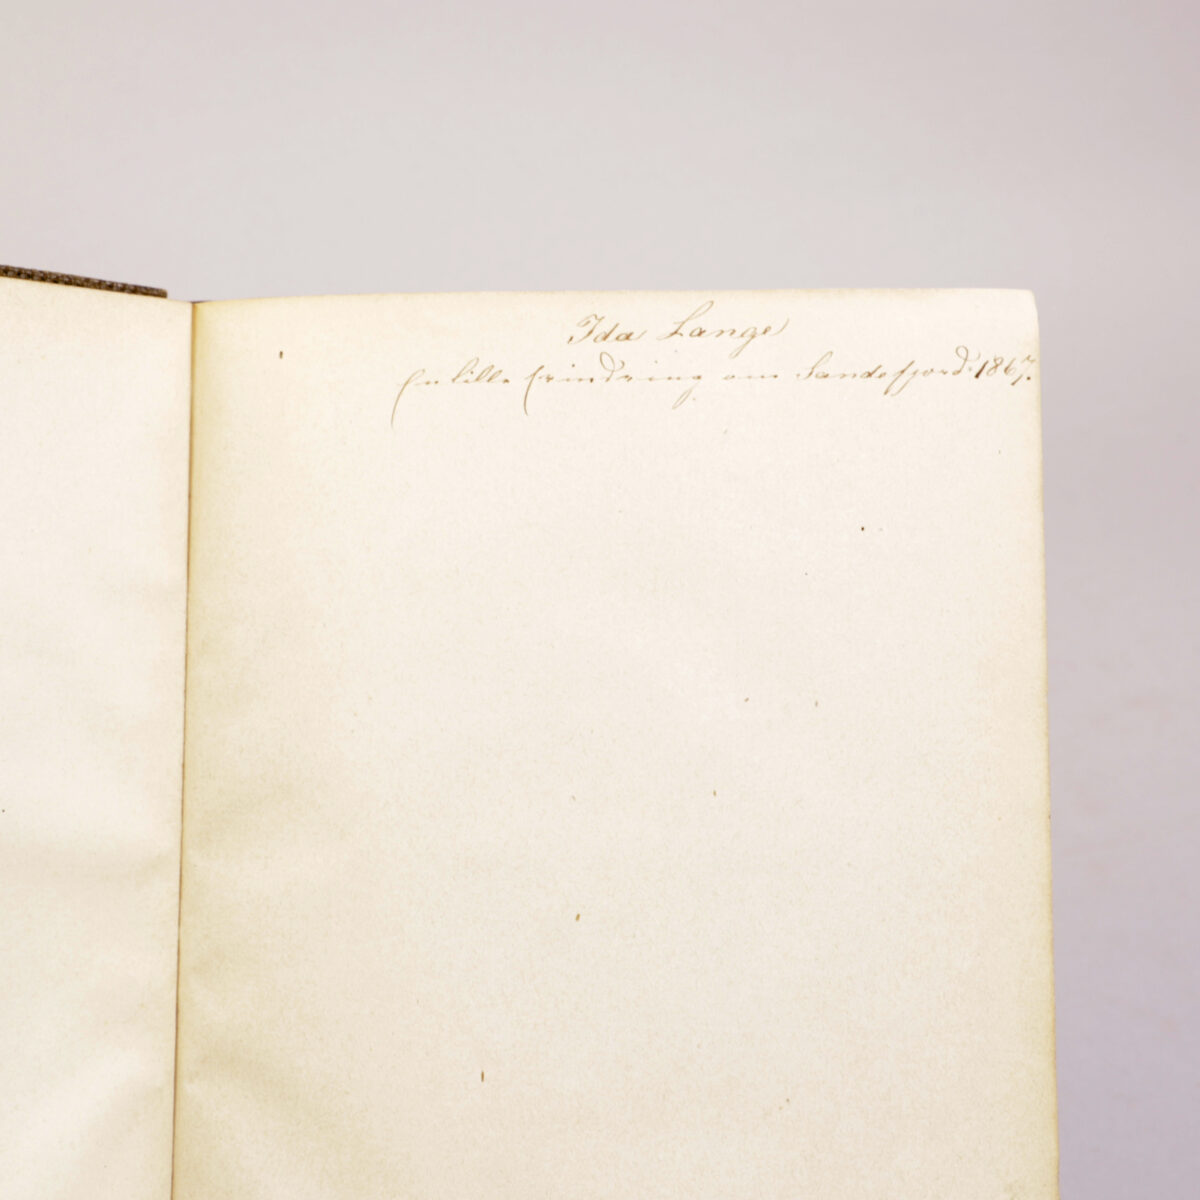 Ida Lange
En lille Erindring om Sandefjord. 1867.